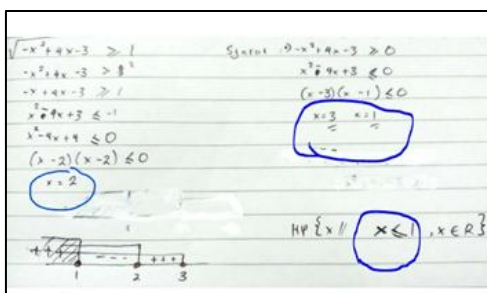 √-x²+4x-3 ≥ 1
-x²+4x-3 ≥ 1²
-x+4x-3 ≥ 1
x²-4x+3 ≤ -1
x²-4x+4 ≤ 0
(x-2)(x-2) ≤ 0
x = 2
+++ --- +++
1 2 3
Syarat :) -x²+4x-3 ≥ 0
x²-4x+3 ≤ 0
(x-3)(x-1) ≤ 0
x=3 x=1
--
HP {x // x ≤ 1, x ∈ R}